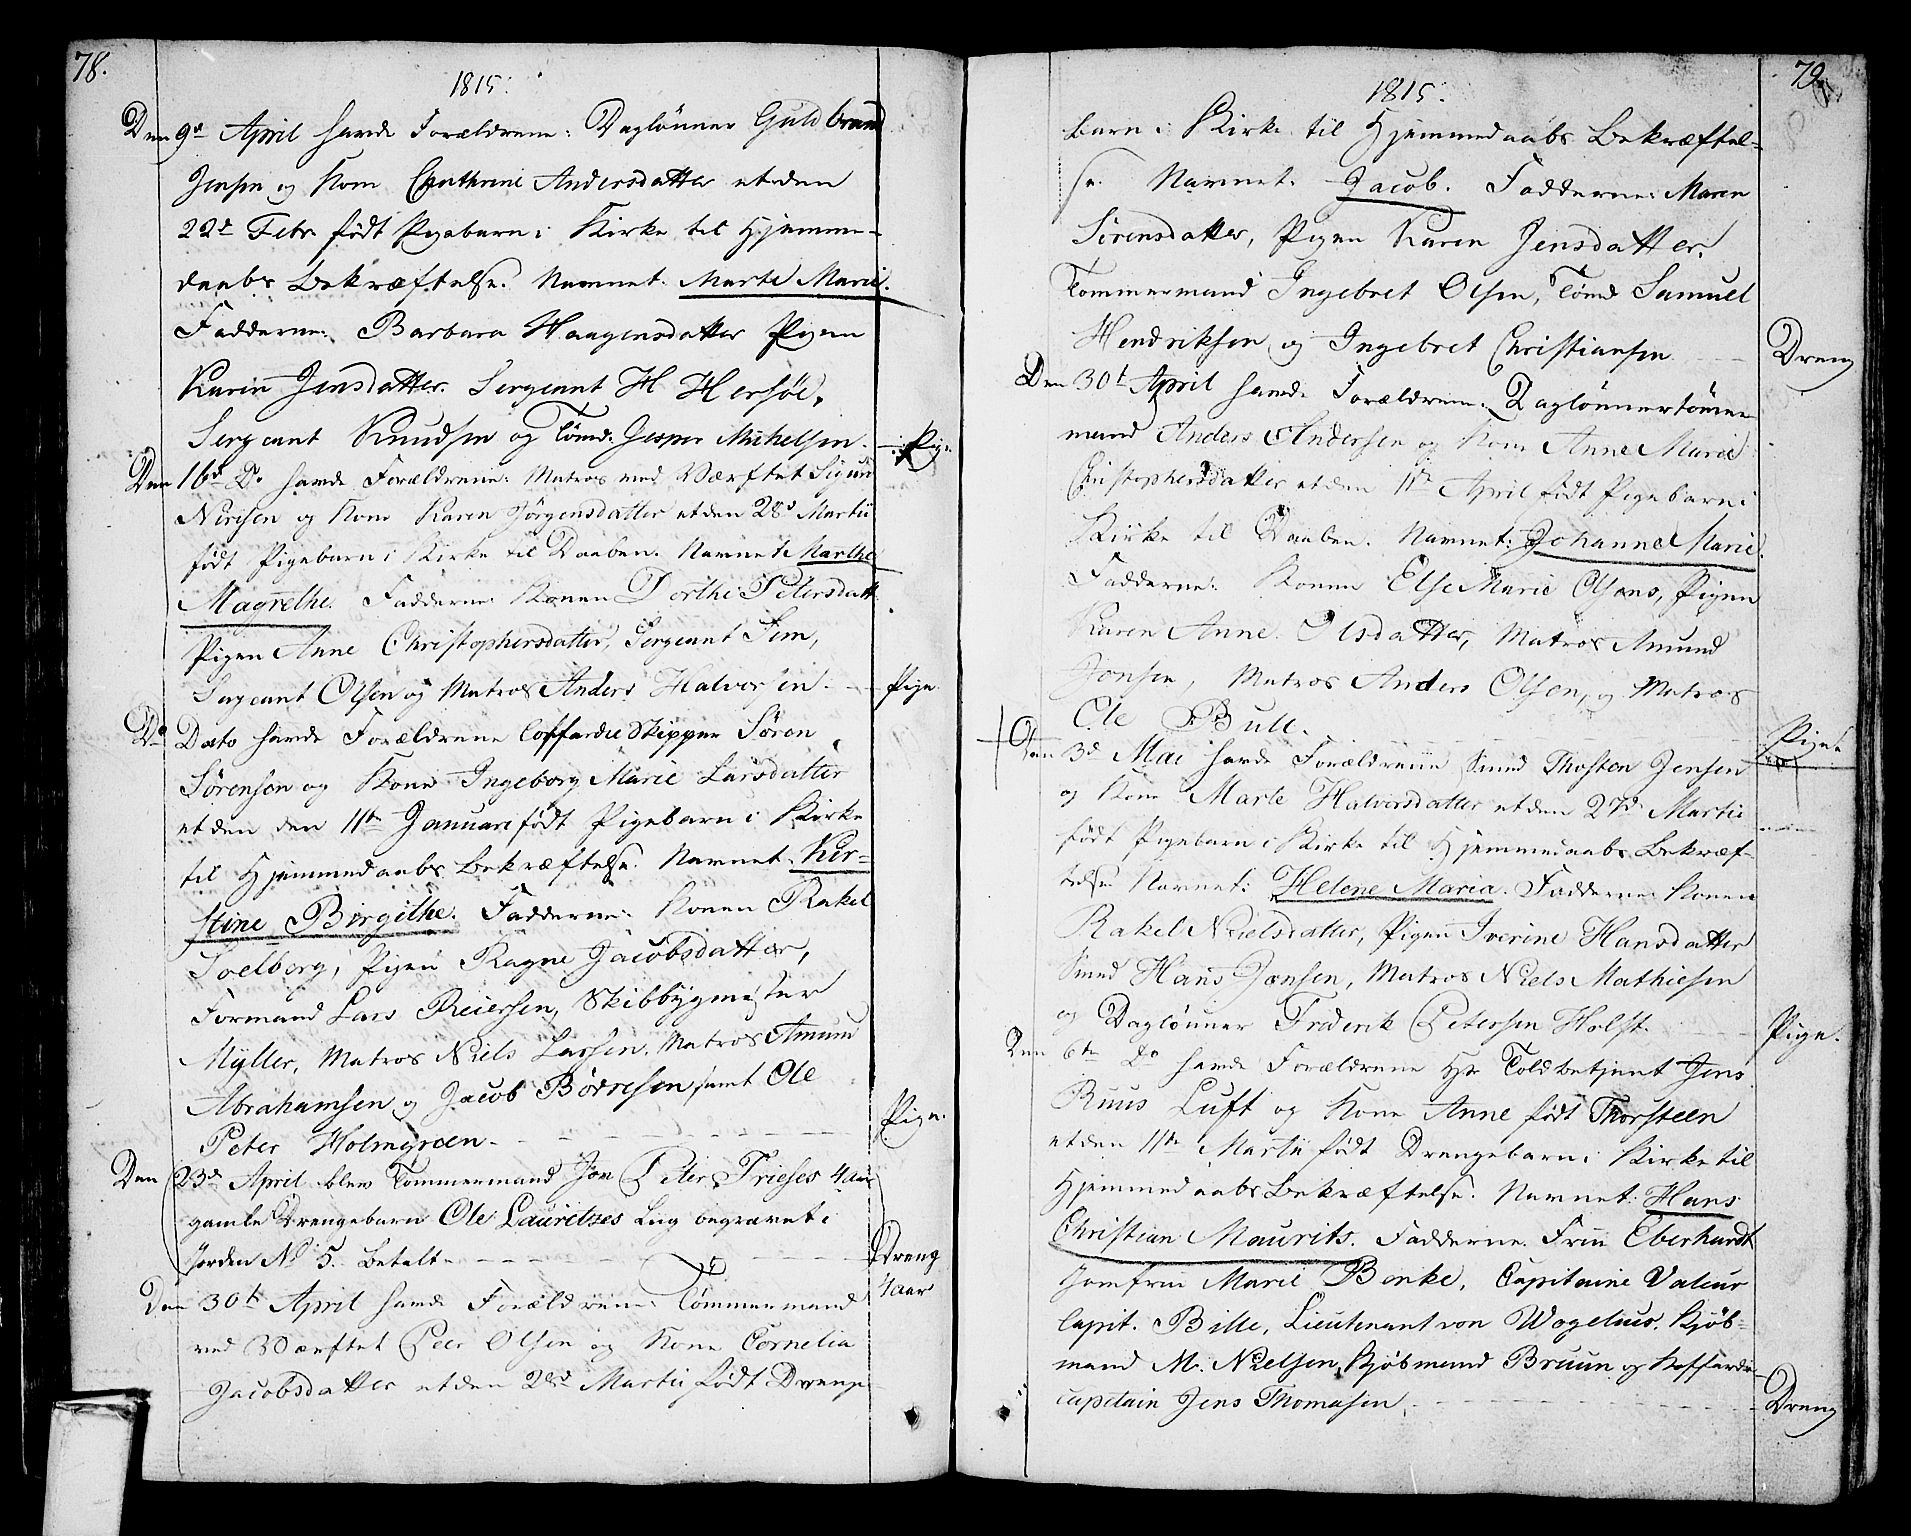 78.
1815.
Den 9de April havde Forældrene: Daglønner Guldbrand
Jensen og Kone Cathrine Andersdatter et den
22de Febr født Pigebarn i Kirke til Hjemme-
daabs Bekræftelse. Navnet. Marte Marie.
Fadderne: Barbara Haagensdatter Pigen
Karin Jensdatter. Sergeant H
Sergeant Knudsen og Tømd. Jesper Michelsen. Pige
Den 16d Do havde Forældrene: Matros ved Værftet
Nirisen og Kone Karen Jørgensdatter et den 28d Martii
født Pigebarn i Kirke til Daaben. Navnet. Marthe
Magrethe. Fadderne: Konen Dorthe Petersdatt.
Pigen Anne Christophersdatter, Sergeant Sem,
Sergeant Olsen og Matros Anders Halvorsen. Pige.
Do Dato havde Forældrene Coffardie Skipper Søren
Sørensen og Kone Ingeborg Marie Larsdatter
et den den 11te Januari født Pigebarn i Kirke
til Hjemmedaabs Bekræftelse. Navnet. Kir-
stine Birgithe. Fadderne: Konen Rakel
Soelberg, Pigen Ragne Jacobsdatter,
Formand Lars Reiersen, Skibbygmester
Myller, Matros Niels Larsen, Matros Amund
Abrahamsen og Jacob Børresen samt Ole
Peter Holmgreen. Pige.
Den 23de April blev Tømmermand Jon Peter Trieses 4 aar
gamle Drengebarn Ole Lauritzes Liig begravet i
Jorden No 5. Betalt. Dreng
4 aar
Den 30te April havde Forældrene: Tømmermand
ved Værftet Peer Olsen og Kone Cornelia
Jacobsdatter et den 28d Martii født Drenge

79.
1815.
barn i Kirke til Hjemmedaabs Bekræftel-
se. Navnet. Jacob. Fadderne: Maren
Sirensdatter, Pigen Karen Jensdatter,
Tømmermand Ingebret Olsen, Tømd Samuel
Hendriksen og Ingebret Christiansen Dreng
Den 30te April havde Forældrene: Dagløn­ner tømmer
mand Anders Andersen og Kone Anne Marie
Christophersdatter et den 11te April født Pigebarn i
Kirke til Daaben. Navnet: Johanne Marie.
Fadderne: Konen Else Marie Olsens, Pigen
Karen Anne Olsdatter, Matros Amund
Jonsen, Matros Anders Olsen, og Matros
Ole Bull. Pige.
Den 3d Mai havde Forældrene Smed Thosten Jensen
og Kone Marte Halvorsdatter et den 27de Martii
født Pigebarn i Kirke til Hjemmedaabs Bekræf-
telse Navnet: Helene Maria. Fadderne: Konen
Rakel Nielsdatter, Pigen Iverine Hansdatter
Smed Hans Jensen, Matros Niels Mathiesen
og Dagløn­ner Frederik Petersen Holst. Pige.
Den 6te Do havde Forældrene Hr Toldbetjent Jens
Ruus Luft og Kone Anne født Thorsteen
et den 11te Martii født Drengebarn i Kirke til
Hjemmedaabs Bekræftelse. Navnet: Hans
Christian Maurits. Fadderne. Fruu Eberhardt
Jomfru Marie Benke, Capitaine Valeur
Capit. Bille, Lieutenant von Wogelius. Kjøb-
mand M. Nielsen, Kjøbmand Bruun og Koffardie
capitain Jens Thomasen. Dreng